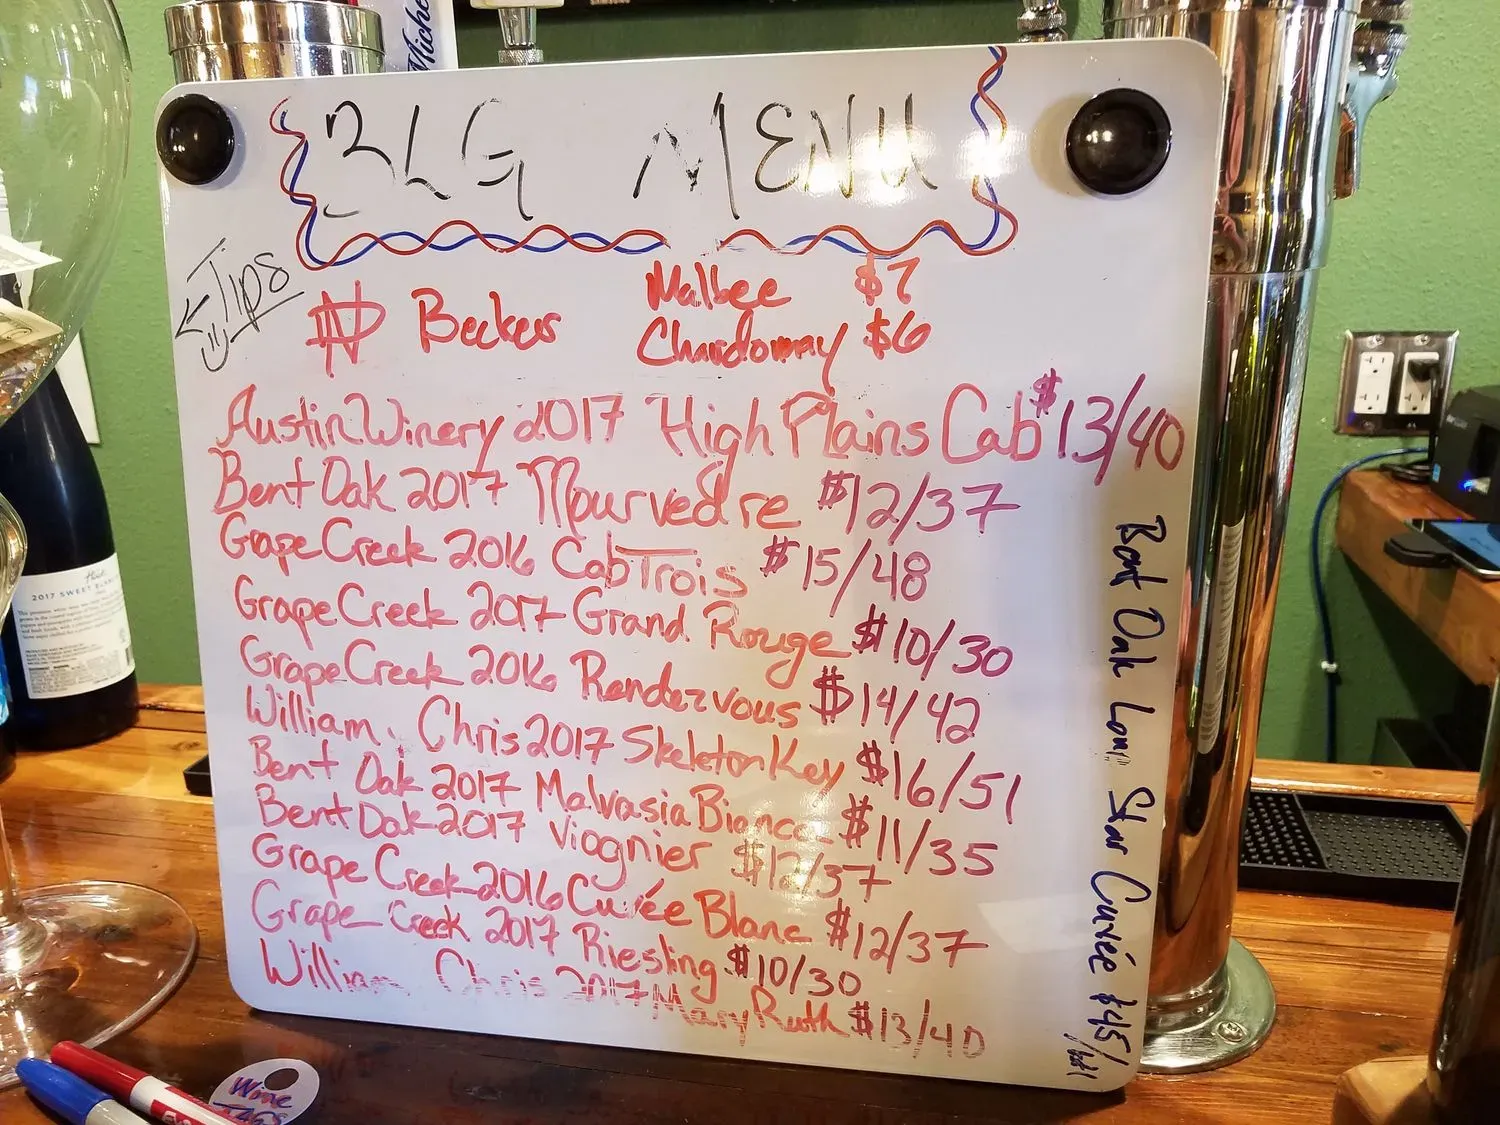 Miche
BLG MENU
Tips
Beckers
Malbec $7
Chardonnay $6
Austin Winery 2017 High Plains Cab $13/40
Bent Oak 2017 Mourvedre $12/37
Grape Creek 2016 Cab Trois $15/48
Grape Creek 2017 Grand Rouge $10/30
Grape Creek 2016 Rendezvous $14/42
William Chris 2017 Skeleton Key $16/51
Bent Oak 2017 Malvasia Bianca $11/35
Bent Oak 2017 Viognier $12/37
Grape Creek 2016 Cuvée Blanc $12/37
Grape Creek 2017 Riesling $10/30
William Chris 2017 Mary Ruth $13/40
Bent Oak Lone Star Cuvée $45/
2017 SWEET
Wine
TAGS